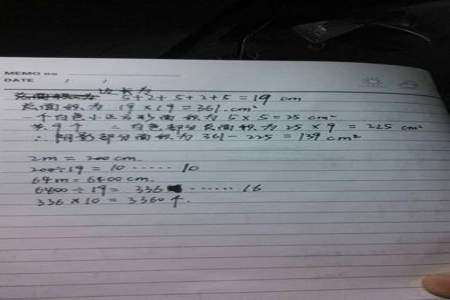 MEMO NO.
DATE / /
边长为
5+2+5+2+5=19 cm
总面积为 19×19=361 cm²
一个白色小正方形面积为 5×5=25 cm²
共9个 ∴白色部分总面积为 25×9=225 cm²
∴阴影部分面积为 361-225=139 cm²
2m=200cm.
200÷19=10……10
64m=6400cm.
6400÷19=336……16
336×10=3360个.